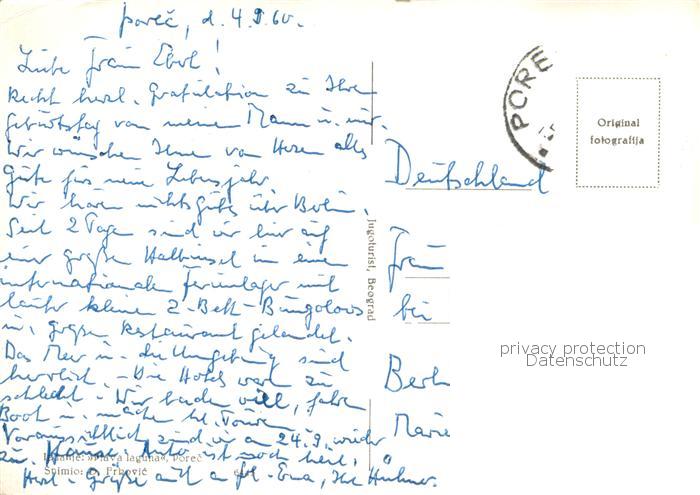 Poreč, d. 4.9.60.
Liebe Frau Eberl!
Recht herzl. Gratulation zu Ihrem
Geburtstag von meinem Mann u. mir.
Wir wünschen Ihnen von Herzen alles
Gute fürs neue Lebensjahr.
Wir hören nichts Gutes über Berlin.
Seit 2 Tagen sind wir hier auf
einer großen Halbinsel in einem
internationalen Ferienlager mit
lauter kleinen 2-Bett-Bungalows
u. großem Restaurant gelandet.
Das Meer u. die Umgebung sind
herrlich. - Die Hotels waren zu
schlecht. - Wir baden viel, fahren
Boot u. machen kl. Touren.
Voraussichtlich sind wir am 24.9. wieder
zu Hause. Auto ist noch heil.
Herzl. Grüße auch an Frl. Erna, Ihre Hühner.
Plava laguna, Poreč
Snimio: Frković
Jugoturist, Beograd
PORE
Original
fotografija
Deutschland
Frau
bei
Berlin
Marie
privacy protection
Datenschutz